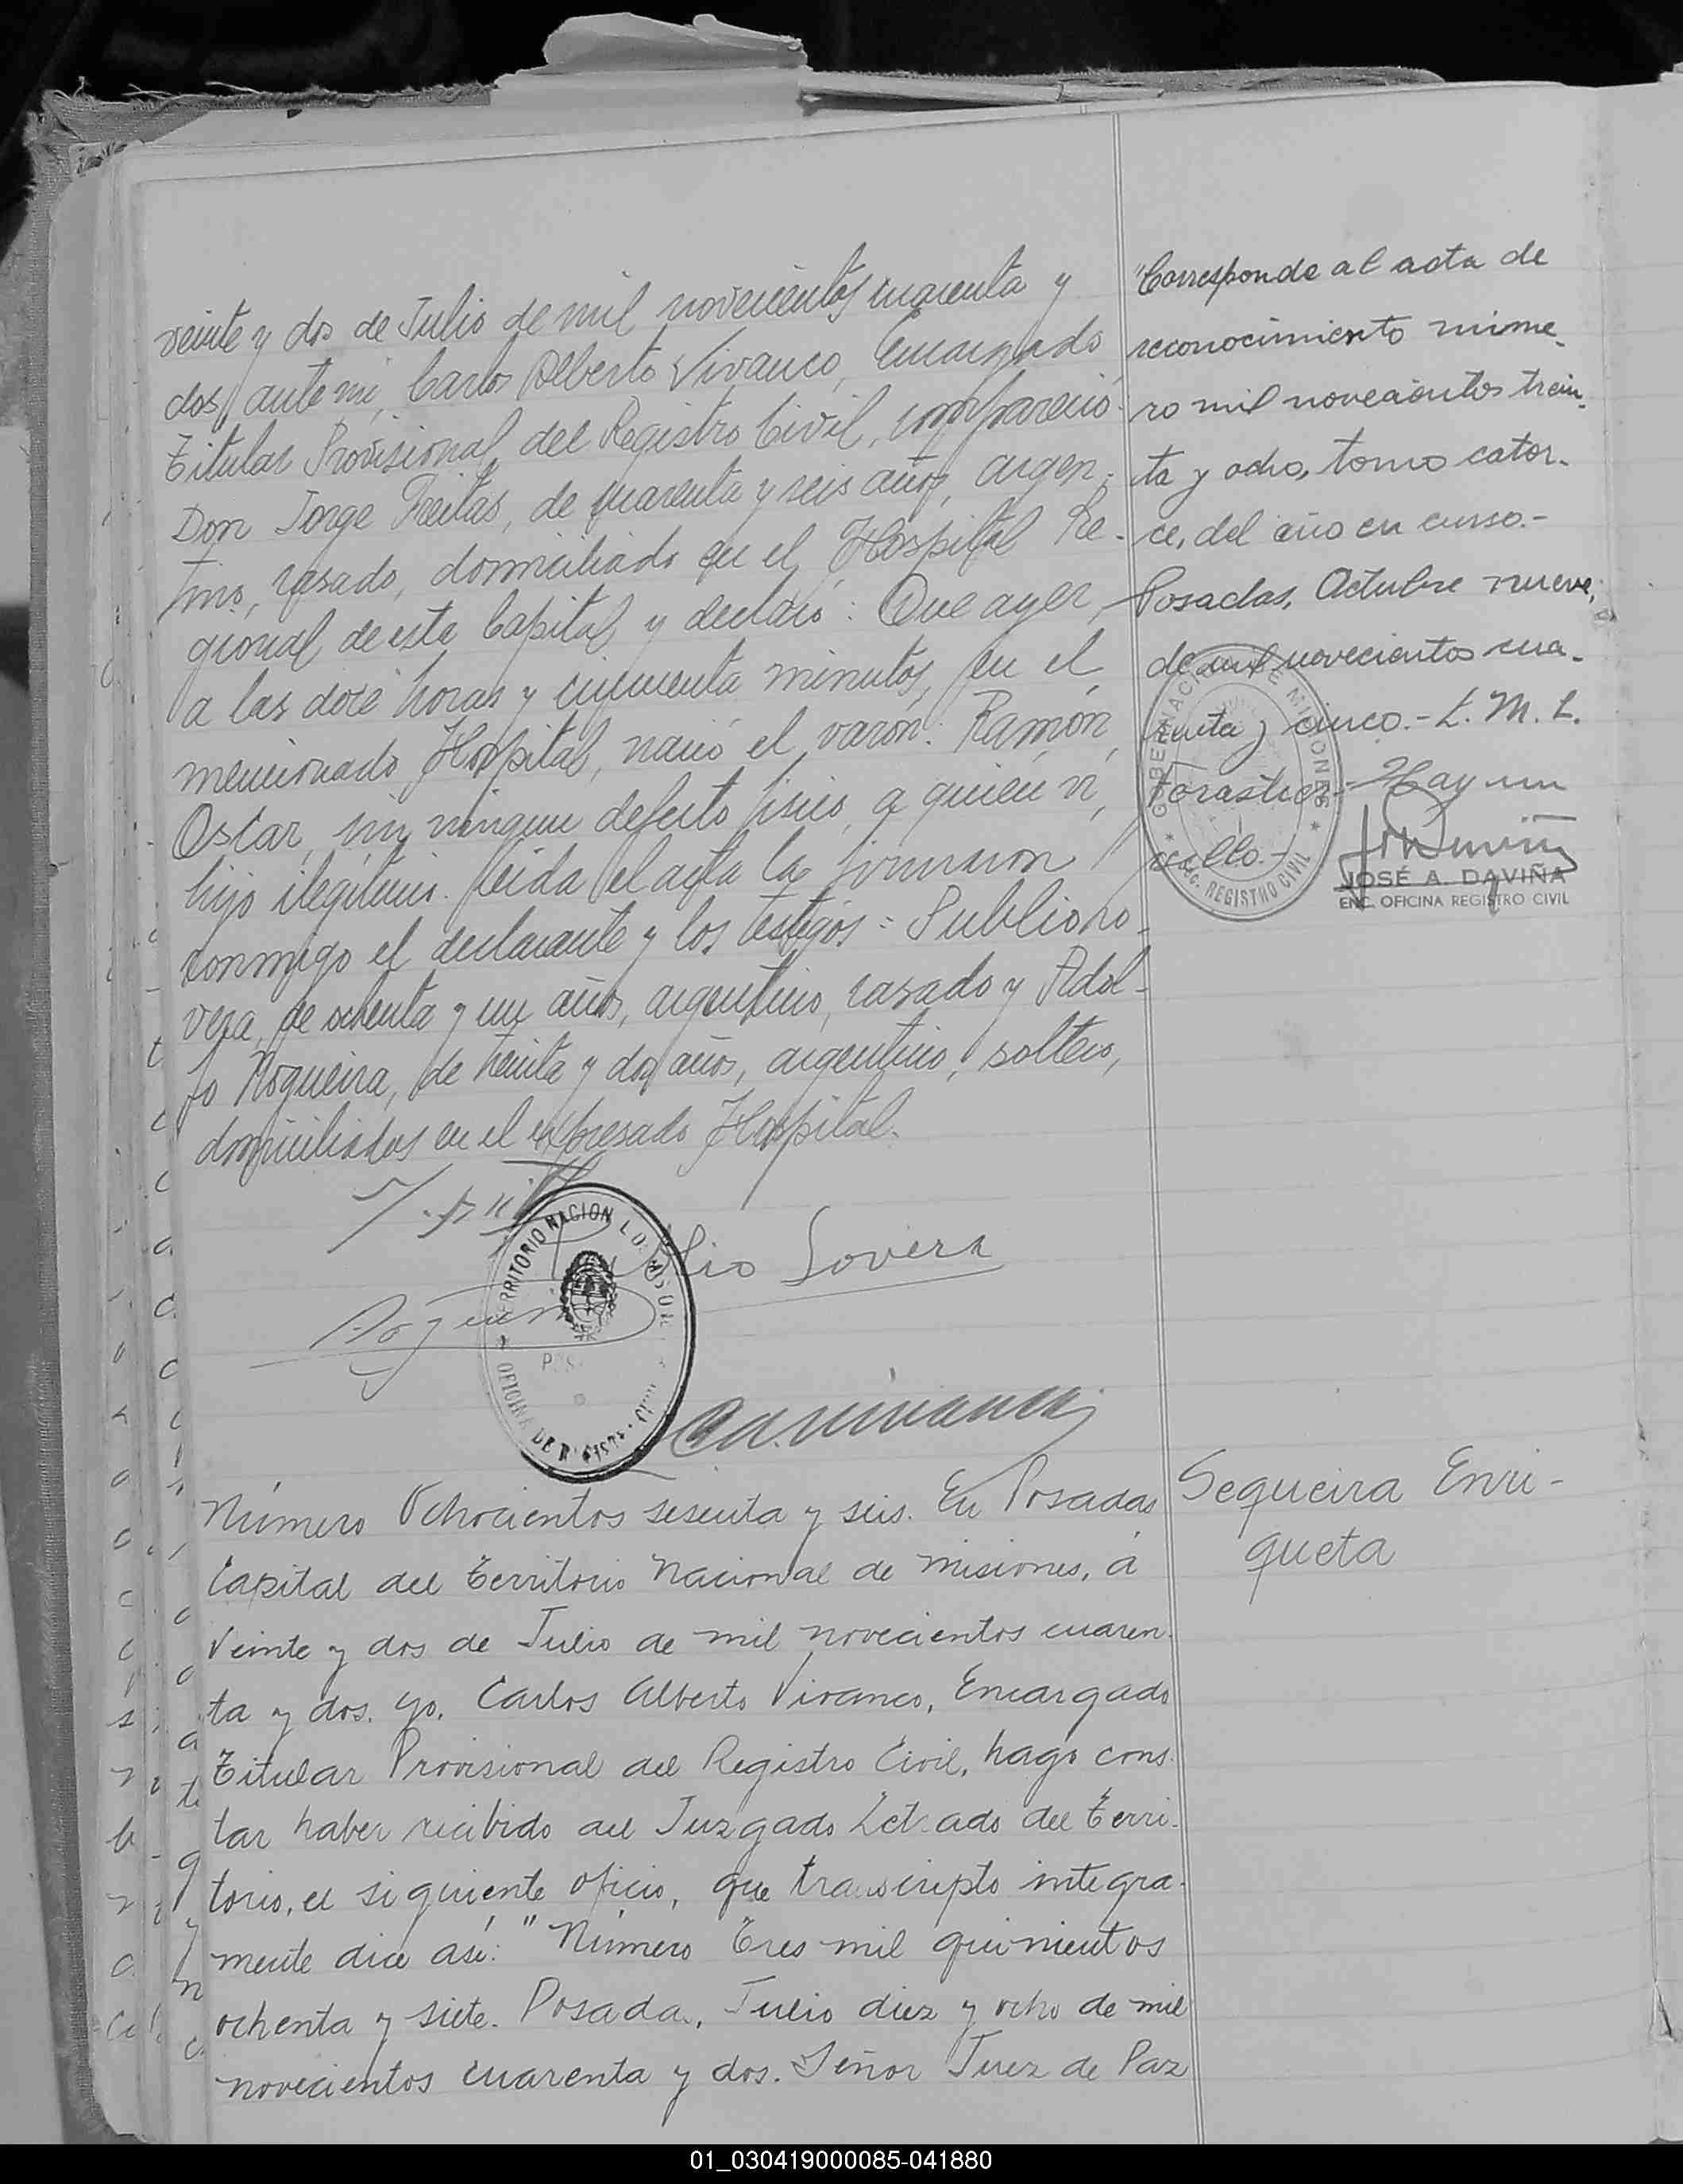 veinte y dos de Julio de mil novecientos cuarenta y
dos, ante mi, Carlos Alberto Vivanco, Encargado
Titular Provisional del Registro Civil, compareció
Don Jorge Freitas, de cuarenta y seis años, argen-
tino, casado, domiciliado en el Hospital Re-
gional de esta Capital y declaró: Que ayer,
a las doce horas y cincuenta minutos, en el
mencionado Hospital, nació el varón: Ramón
Oscar, sin ningun defecto fisico, a quien vi,
hijo ilegítimo. Leida el acta la firmaron
conmigo el declarante y los testigos: Publio Lo-
vera, de ochenta y un años, argentino, casado y Adol-
fo Nogueira, de treinta y dos años, argentino, soltero,
domiciliados en el expresado Hospital.
"Corresponde al acta de
reconocimiento núme-
ro mil novecientos trein-
ta y ocho, tomo cator-
ce, del año en curso.-
Posadas, Octubre nueve,
de mil novecientos cua-
renta y cinco.- L. M. L.
Forastier.- Hay un
sello.-
GOBERNACION DE MISIONES
REGISTRO CIVIL
JOSÉ A. DAVIÑA
ENC. OFICINA REGISTRO CIVIL
Publio Lovera
TERRITORIO NACIONAL DE MISIONES
OFICINA DE REGISTRO CIVIL
Nogueira
C.A. Vivanco
Número Ochocientos sesenta y seis. En Posadas
Capital del Territorio Nacional de Misiones, á
Veinte y dos de Julio de mil novecientos cuaren-
ta y dos. Yo, Carlos Alberto Vivanco, Encargado
Titular Provisional del Registro Civil, hago cons-
tar haber recibido del Juzgado Letrado del Terri-
torio, el siguiente oficio, que transcripto integra-
mente dice así: "Número Tres mil quinientos
ochenta y siete. Posadas, Julio diez y ocho de mil
novecientos cuarenta y dos. Señor Juez de Paz
Sequeira Enri-
queta
01_030419000085-041880